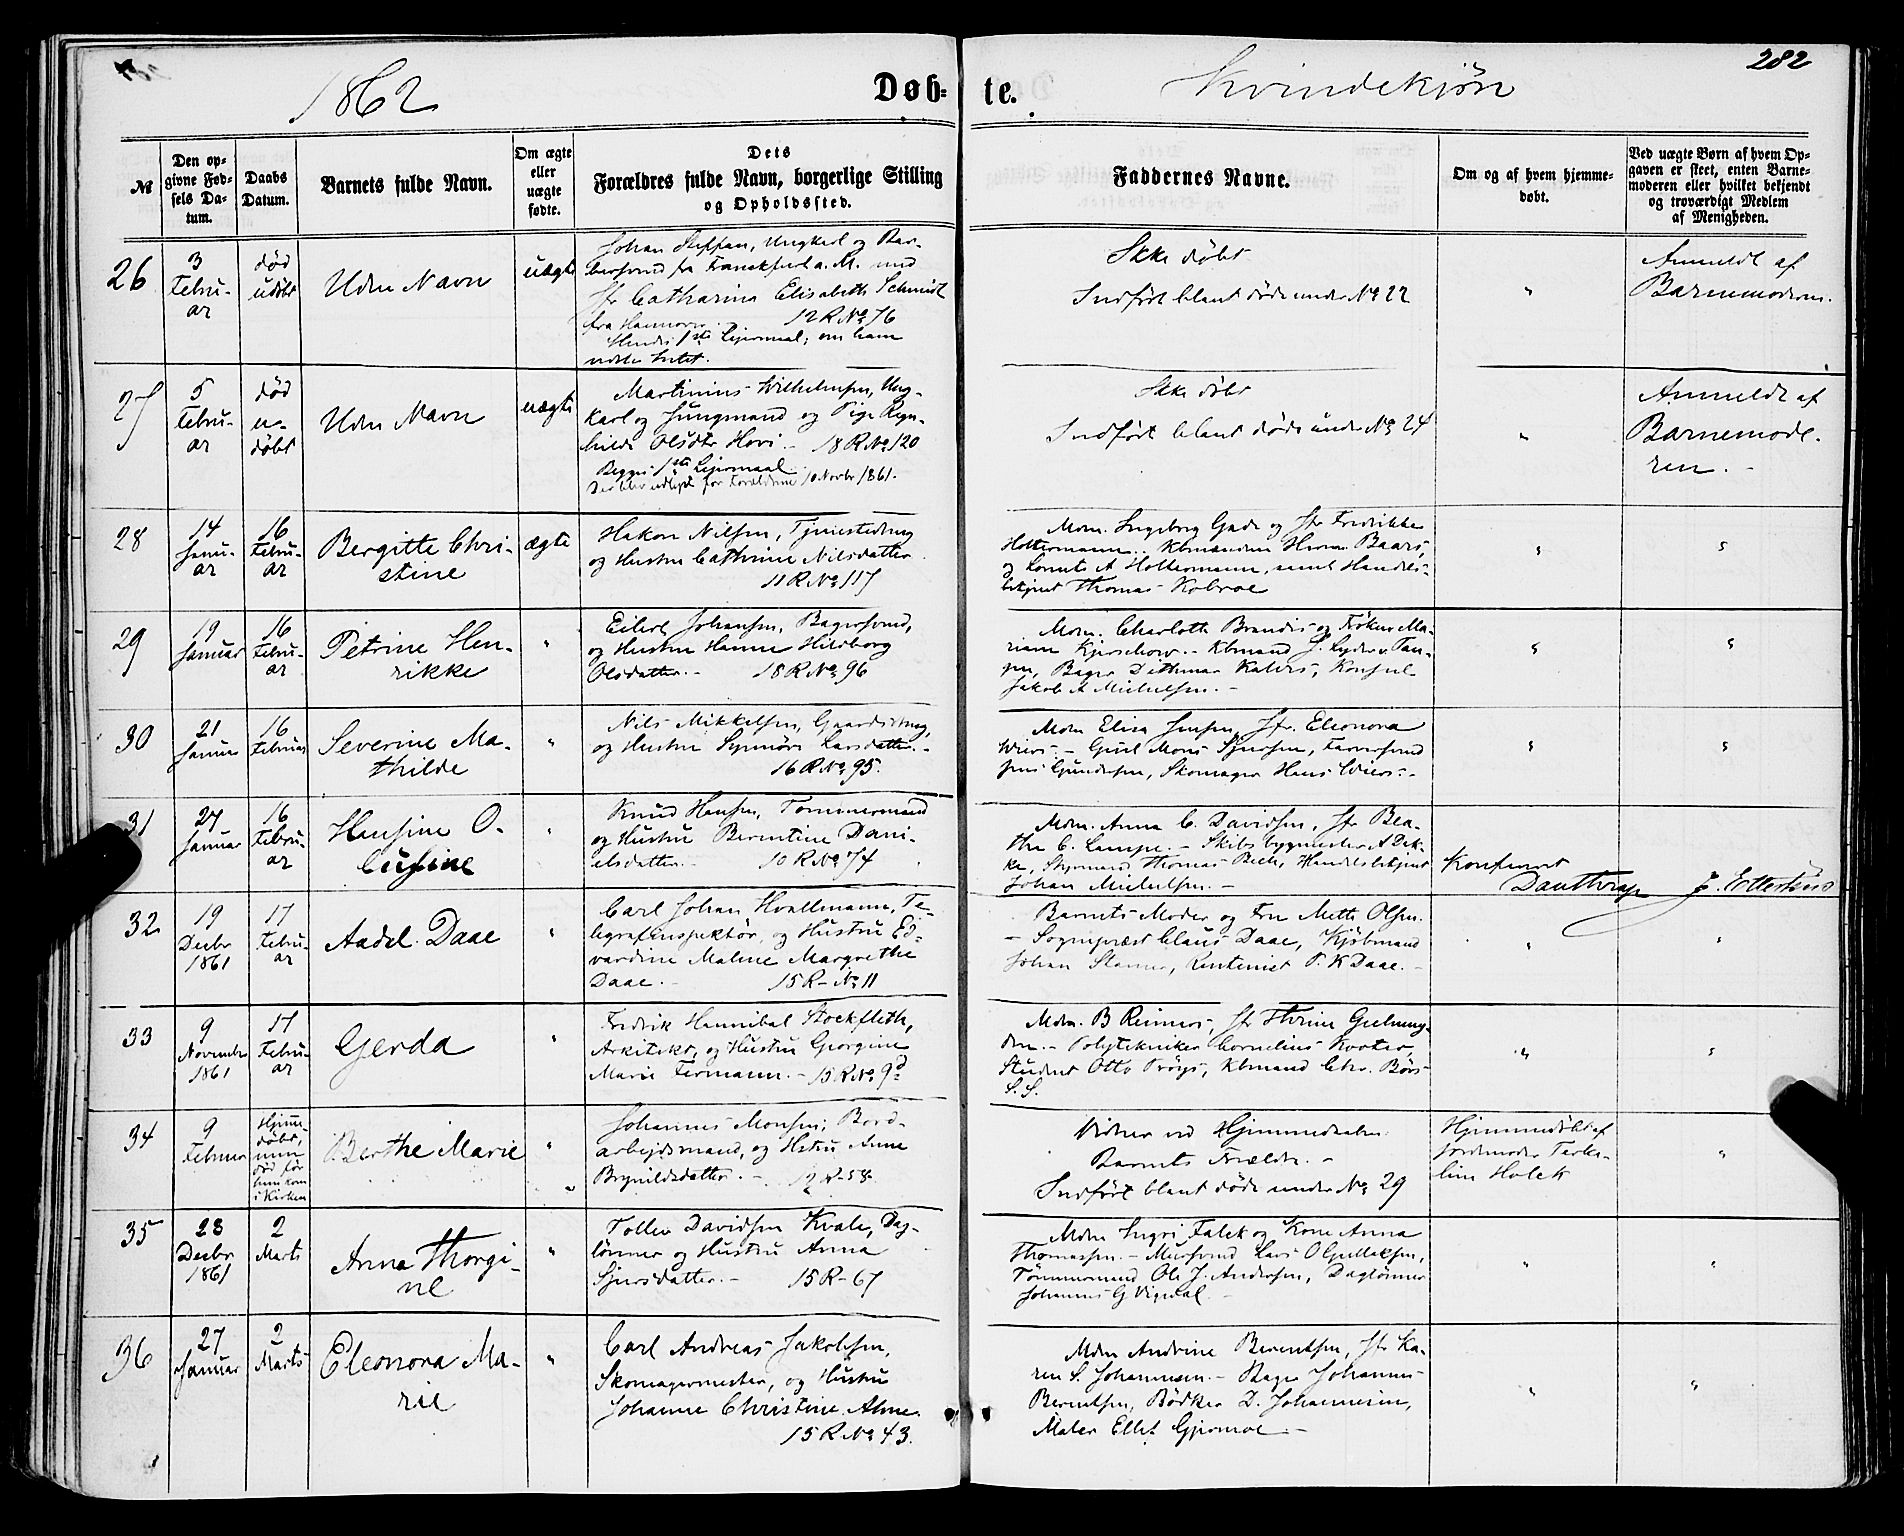 282
1862
Døb-
te.
Kvindekjøn
№
Den op-
givne Fød-
sels Da-
tum.
Daabs
Datum.
Barnets fulde Navn.
Om ægte
eller
uægte
fødte.
Dets
Forældres fulde Navn, borgerlige Stilling
og Opholdssted.
Faddernes Navne.
Om og af hvem hjemme-
døbt.
Ved uægte Børn af hvem Op-
gaven er skeet, enten Barne-
moderen eller hvilket bekjendt
og troværdigt Medlem
af Menigheden.
26
3
Febru-
ar
død
udøbt
Uden Navn
uægte
Johan Steffan, Ungkarl og Bar-
bersvend fra Frankfurt a. M. med
Jfr Catharina Elisabeth Schmidt
fra Hannover. 12 R. No 76
Hendes 1ste Leiermaal; om ham
vides Intet.
Ikke døbt
Indført blant døde under No 22
"
Anmeldt af
Barnemoderen.
27
5
Febru-
ar
død
u-
døbt
Uden Navn
uægte
Martinius Wilhelmsen, Ung-
karl og Jungmand og Pige Ragn-
hilde Olsdtr Hovi. 18 R. No 120
Begges 1ste Leiermaal.
10 Novbr 1861.
Ikke døbt
Indført blant døde under No 24
"
Anmeldt af
Barnemode-
ren.
28
14
Janu-
ar
16
Febru-
ar
Bergitte Chri-
stine
ægte
Hakon Nilsen, Tjenestedreng
og Hustru Cathrine Nilsdatter
11 R No 117
Mdm. Ingeborg Gade og Jfr Fredrikke
Holtermann. Kbmændene Herm. Baars,
og A Holtermann, samt Handels-
betjent Thomas Kobroe
"
"
29
19
Januar
16
Febru-
ar
Petrine Hen-
rikke
"
Eilert Johansen, Bagersvend,
og Hustru Hanne Hildborg
Olsdatter. 18 R. No 96
Mdm. Charlotte Brandis og Frøken Ma-
riane Kjerschow. Kbmand J. Lyder v Tan-
gen, Bager Dithmar Kahrs, Konsul
Jakob A Michelsen.
"
"
30
21
Januar
16
Februar
Severine Ma-
thilde
"
Nils Mikkelsen, Gaardsdreng,
og Hustru Synnøve Larsdatter.
16 R. No 95.
Mdm Elisa Jensen, Jfr. Eleonora
Wiers. Gjest Mons Sjursen, Farversvend
Jens Gundersen, Skomager Hans Wiers.
"
"
31
27
Januar
16
Febru-
ar
Hansine O-
lusine
"
Knud Hansen, Tømmermand
og Hustru Berentine Dani-
elsdatter. 10 R No 74
Mdm. Anna C. Davidsen, Jfr Bea-
the C. Lampe. Skibsbygmester A Dek-
ke, Styrmand Thomas Beck, Handelsbetjent
Johan Michelsen.
Konfereret
32
19
Decbr
1861
17
Febru-
ar
Aadel Daae
"
Carl Johan Hvallmann, Te-
legrafinspektør, og Hustru Ed-
vardine Maline Margrethe
Daae. 15 R. No 11
Barnets Moder og Fru Mette Olsen.
Sognepræst Claus Daae, Kjøbmand
Johan Stamer, Rentenist P. K Daae.
"
"
33
9
November
1861
17
Febru-
ar
Gerda
"
Fredrik Hannibal Stockfleth,
Arkitekt, og Hustru Georgine
Marie Fermann. 15 R. No 9d
Mdm. B Reimers, Jfr Thrine Gjelmuy-
den. Polytekniker Cornelius Kooter,
Student Otto Prøys, Kbmand Chr. Børs
S. S.
"
"
34
9
Februar
Hjemme-
døbt,
men
død før
hun kom
i Kirken
Berthe Marie
"
Johannes Monsen, Bord-
arbejdsmand, og Hstru Anne
Brynildsdatter. 12 R. 58
Vidner ved Hjemmedaaben
Barnets Forældre.
Indført blant døde under No 29
Hjemmedøbt af
Jordmoder Terke-
line Holck
"
35
23
Decbr
1861
2
Marts
Anna Thorgi-
ne
"
Tollev Davidsen Kvale, Dag-
lønner og Hustru Anna
Sjursdatter. 15 R. 67
Mdm Ingri Falck og Kone Anna
Thomassen. Mursvend Lars O Gulleksen,
Tømmermand Ole J. Andersen, Daglønner
Johannes G Vigedal.
"
"
36
27
Januar
2
Marts
Eleonora Ma-
rie
"
Carl Andreas Jakobsen,
Skomagermester, og Hustru
Johanne Christine Alme.
15 R. No 43.
Mdm Andrine Berentsen, Jfr Ka-
ren S. Johannesen. Bager Johannes
Berentsen, Bødker D. Johannesen,
Maler Ellet Gjermoe.
"
"